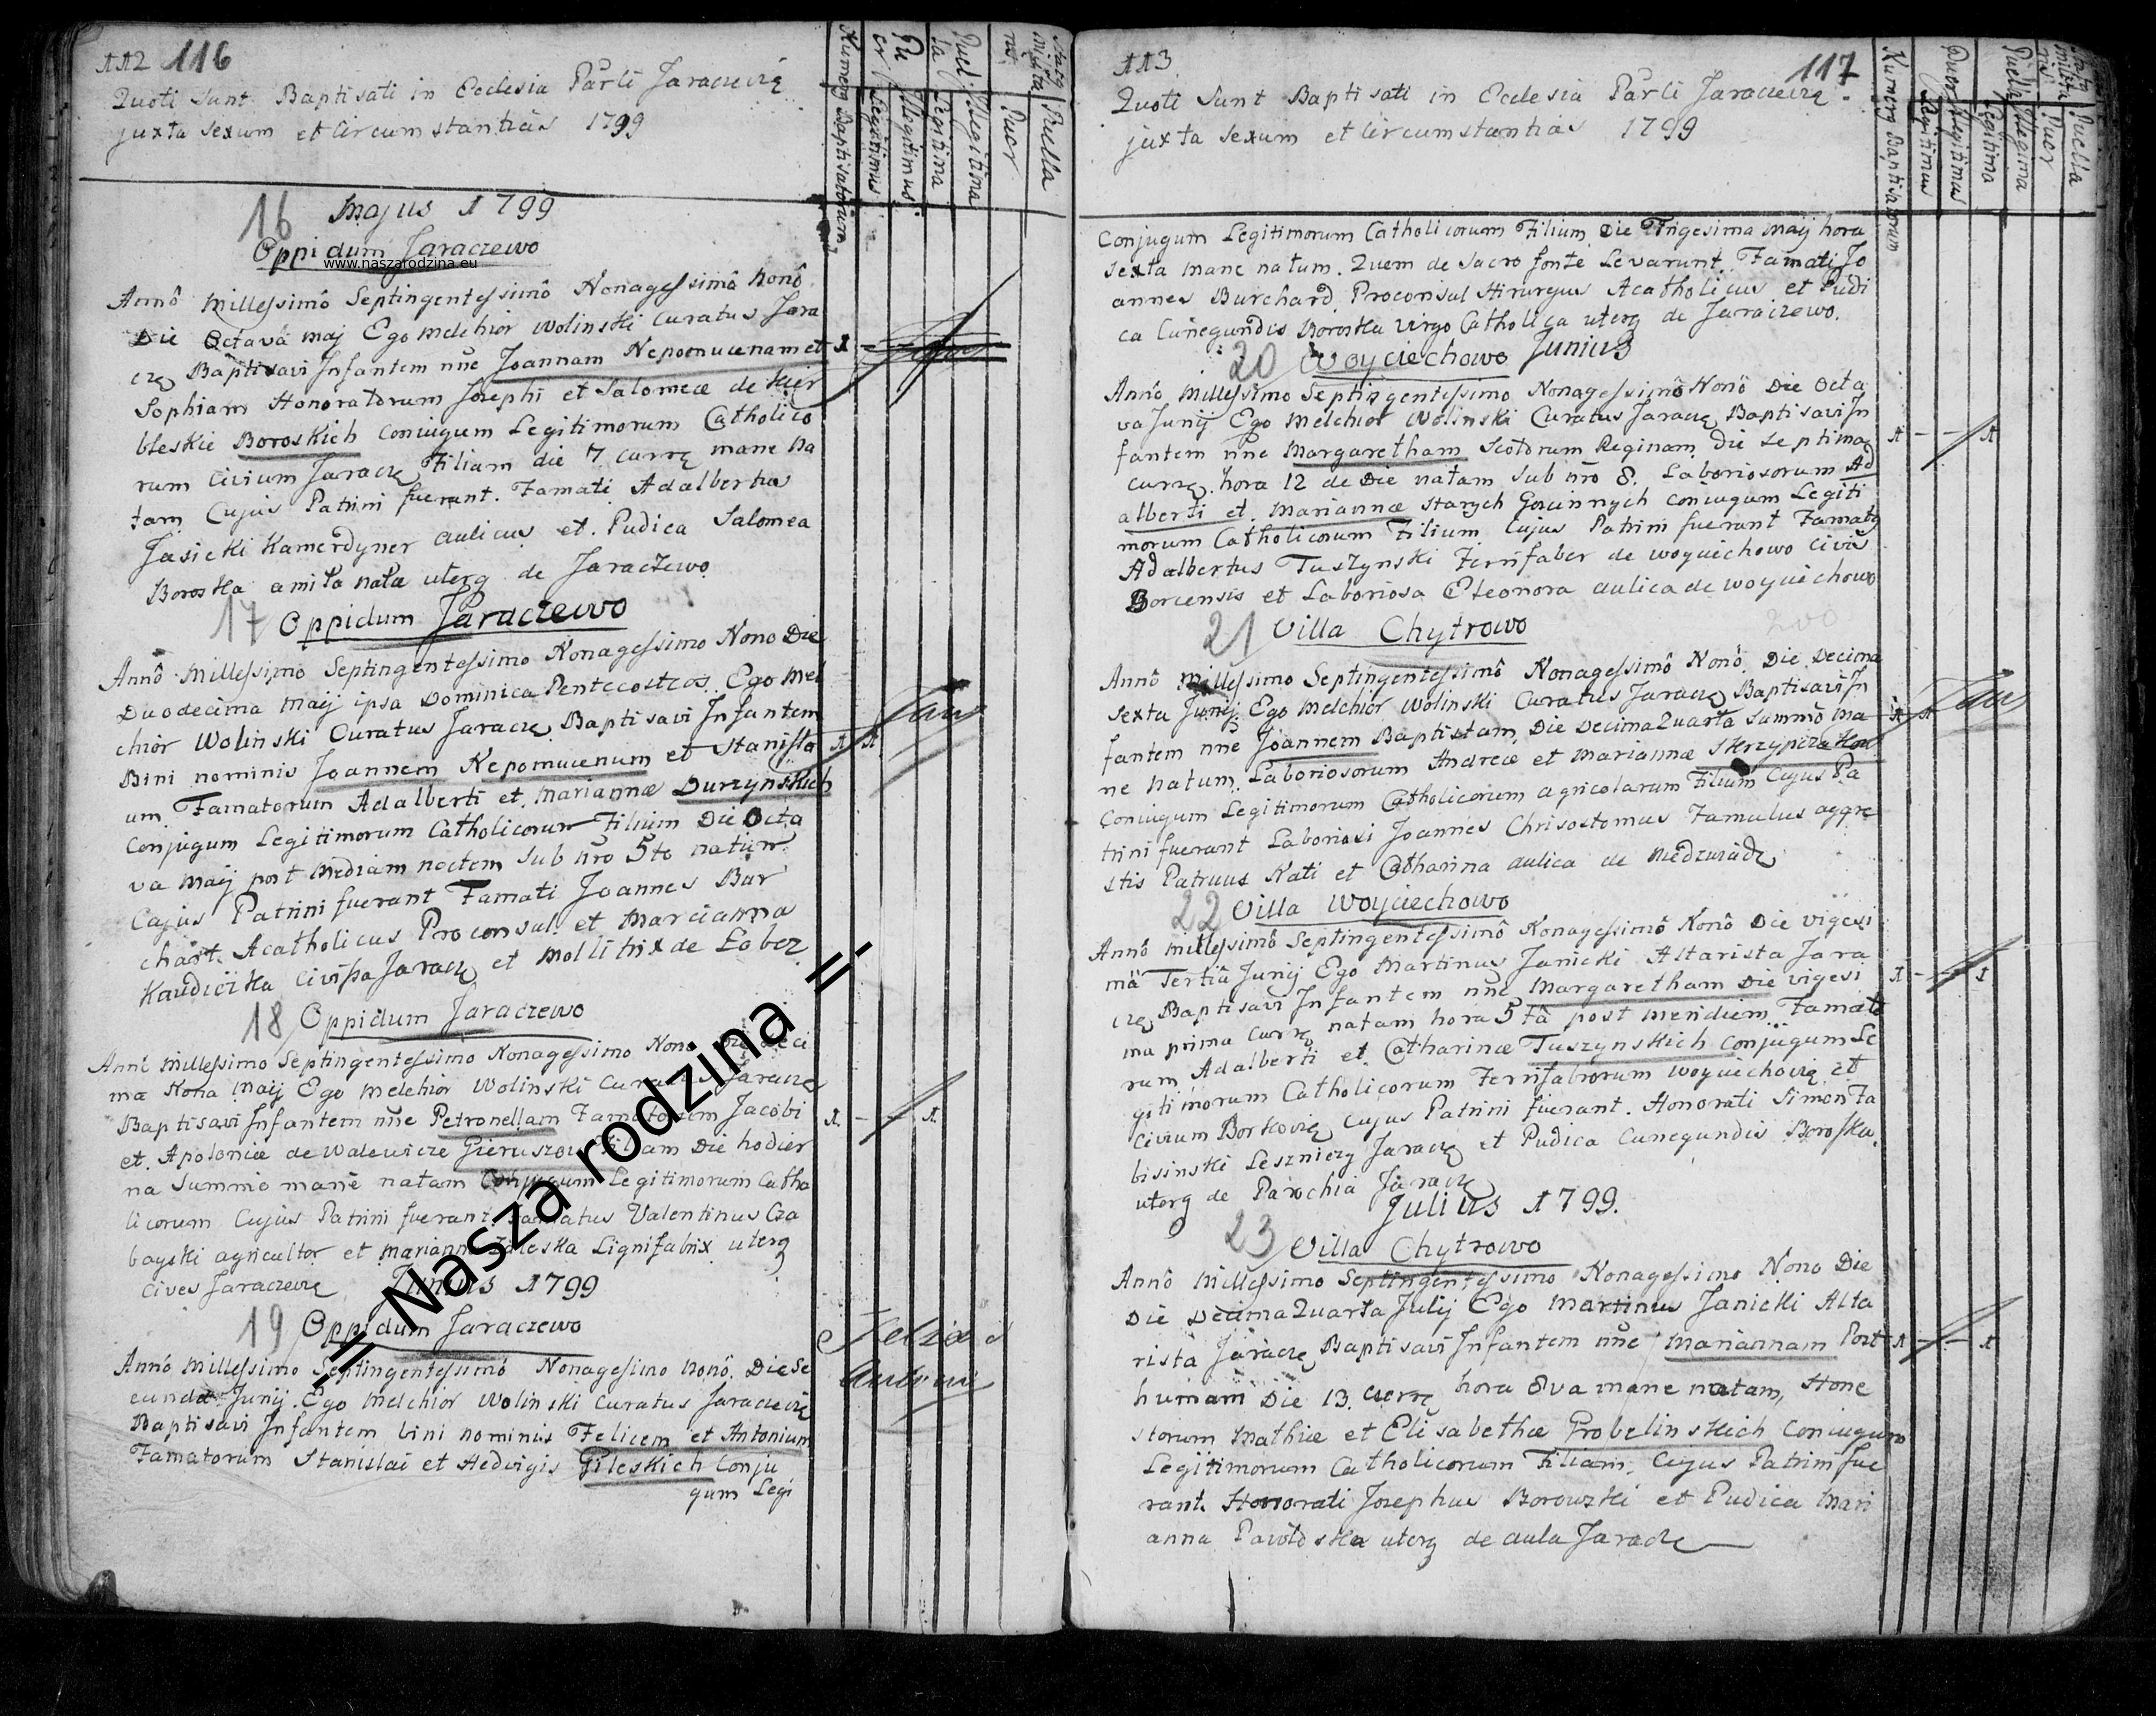 112 116
Quoti sunt Baptisati in Ecclesia Parli Jaraczevię
juxta sexum et Circumstantias 1799
Numerq Baptisatorum
Puer
Legitimus
Illegitimus
Puella
Legitima
Illegitima
Puer
Puella
16 Majus 1799
Oppidum Jaraczewo
www.naszarodzina.eu
Annô Millessimô Septingentessimô Nonagessimô Nonô
Die Octavâ Maj Ego Melchior Wolinski Curatus Jara
czę Baptisavi Infantem nñe Joannam Nepomucenam et
Sophiam Honoratorum Josephi et Salomeæ de Kier
bleskie Boroskich Coniugum Legitimorum Catholico
rum Civium Jaraczę Filiam die 7 currę mane na
tam Cujus Patrini fuerunt. Famati Adalbertus
Jasicki Kamerdyner aulicus et Pudica Salomea
Boroska amita nata uterq de Jaraczewo
17 Oppidum Jaraczewo
Annô Millessimo Septingentessimo Nonagessimo Nono Die
Duodecima Maij ipsa Dominica Pentecostes. Ego Mel
chior Wolinski Curatus Jaraczę Baptisavi Infantem
Bini nominis Joannem Nepomucenum et Stanisla
um Famatorum Adalberti et Mariannæ Durzynskich
Conjugum Legitimorum Catholicorum Filium Die Octa
va Maij post Mediam noctem Sub nro 5to natum
Cujus Patrini fuerunt Famati Joannes Bur
chart Acatholicus Proconsul et Marcianna
Civissa Jaraczę et Mollitrix de Lobez
18 Oppidum Jaraczewo
Annô Millessimo Septingentessimo Nonagessimo Nono Die Deci
ma Nona Maij Ego Melchior Wolinski Curatus Jaraczę
Baptisavi Infantem nñe Petronellam Famatorum Jacobi
et Apoloniæ de Walewicze Filiam Die hodier
na Summo mane natam Conjugum Legitimorum Catho
licorum Cujus Patrini fuerunt. Famatus Valentinus Cza
bayski agricultor et Marianna Lignifabrix uterq
Cives Jaraczevię
Junius 1799
19 Oppidum Jaraczewo
Annô Millessimo Septingentessimô Nonagesimo Nonô. Die Se
cunda Junij. Ego Melchior Wolinski Curatus Jaraczevię
Baptisavi Infantem bini nominis Felicem et Antonium
Famatorum Stanislai et Hedvigis Gileskich Conju
gum Legi
= Nasza rodzina =
113 117
Quoti Sunt Baptisati in Ecclesia Parli Jaraczevię
juxta Sexum et Circumstantias 1799
Numerq Baptisatorum
Puer
Legitimus
Illegitimus
Puella
Legitima
Illegitima
Puer
Puella
Conjugum Legitimorum Catholicorum Filium Die Trigesima Maij hora
Sexta mane natum. Quem de Sacro fonte Levarunt. Famati Jo
annes Burchard Proconsul Hirurgus Acatholicus et Pudi
ca Cunegundis Boroska Virgo Catholica uterq de Jaraczewo.
20 Woyciechowo Junius
Annô Millessimo Septingentessimo Nonagessimô Nonô Die Octa
va Junij Ego Melchior Wolinski Curatus Jaraczę Baptisavi In
fantem nñe Margaretham Scotorum Reginam Die Septima
currę. hora 12 de Die natam Sub nro 8. Laboriosorum Ad
alberti et Mariannæ Starych Goscinnych Coniugum Legiti
morum Catholicorum Filium Cujus Patrini fuerunt Famatq
Adalbertus Tuszynski Ferrifaber de Woyciechowo Civis
Borcensis et Laboriosa Eleonora aulica de Woyciechowo
21 Villa Chytrowo
200
Annô Millessimo Septingentessimô Nonagessimô Nonô Die Decima
Sexta Junij Ego Melchior Wolinski Curatus Jaraczę Baptisavi In
fantem nñe Joannem Baptistam Die Decima Quarta Summô Ma
ne Natum. Laboriosorum Andreæ et Mariannæ
Coniugum Legitimorum Catholicorum agricolarum Filium Cujus Pa
trini fuerunt Laboriosi Joannes Chrisostomus Famulus agre
stis Patruus Nati et Catharina aulica de
22 Villa Woyciechowo
Annô Millessimô Septingentessimô Nonagessimô Nonô Die Vigesi
mâ Tertiâ Junij Ego Martinus Janicki Altarista Jara
czę Baptisavi Infantem nñe Margaretham Die Vigesi
ma prima Currę natam hora 5tâ post Meridiem Famato
rum Adalberti et Catharinæ Tuszynskich Conjugum Le
gitimorum Catholicorum Ferrifabrorum Woyciechovię et
Civium Borkovię Cujus Patrini fuerunt. Honorati Simon Ta
bisinski Leszniczy Jaraczę et Pudica Cunegundis Boroska
uterq de Parochia Jaraczę
Julius 1799.
23 Villa Chytrowo
Annô Millessimo Septingentessimo Nonagessimo Nono Die
Die Decima Quarta Julij Ego Martinus Janicki Alta
rista Jaraczę Baptisavi Infantem nñe Mariannam Post
humam Die 13. Currę hora 8va mane natam, Hone
storum Mathiæ et Elisabethæ Probelinskich Coniugum
Legitimorum Catholicorum Filiam. Cujus Patrini fue
rant Honorati Josephus Borowski et Pudica Mari
anna uterq de aula Jaraczę